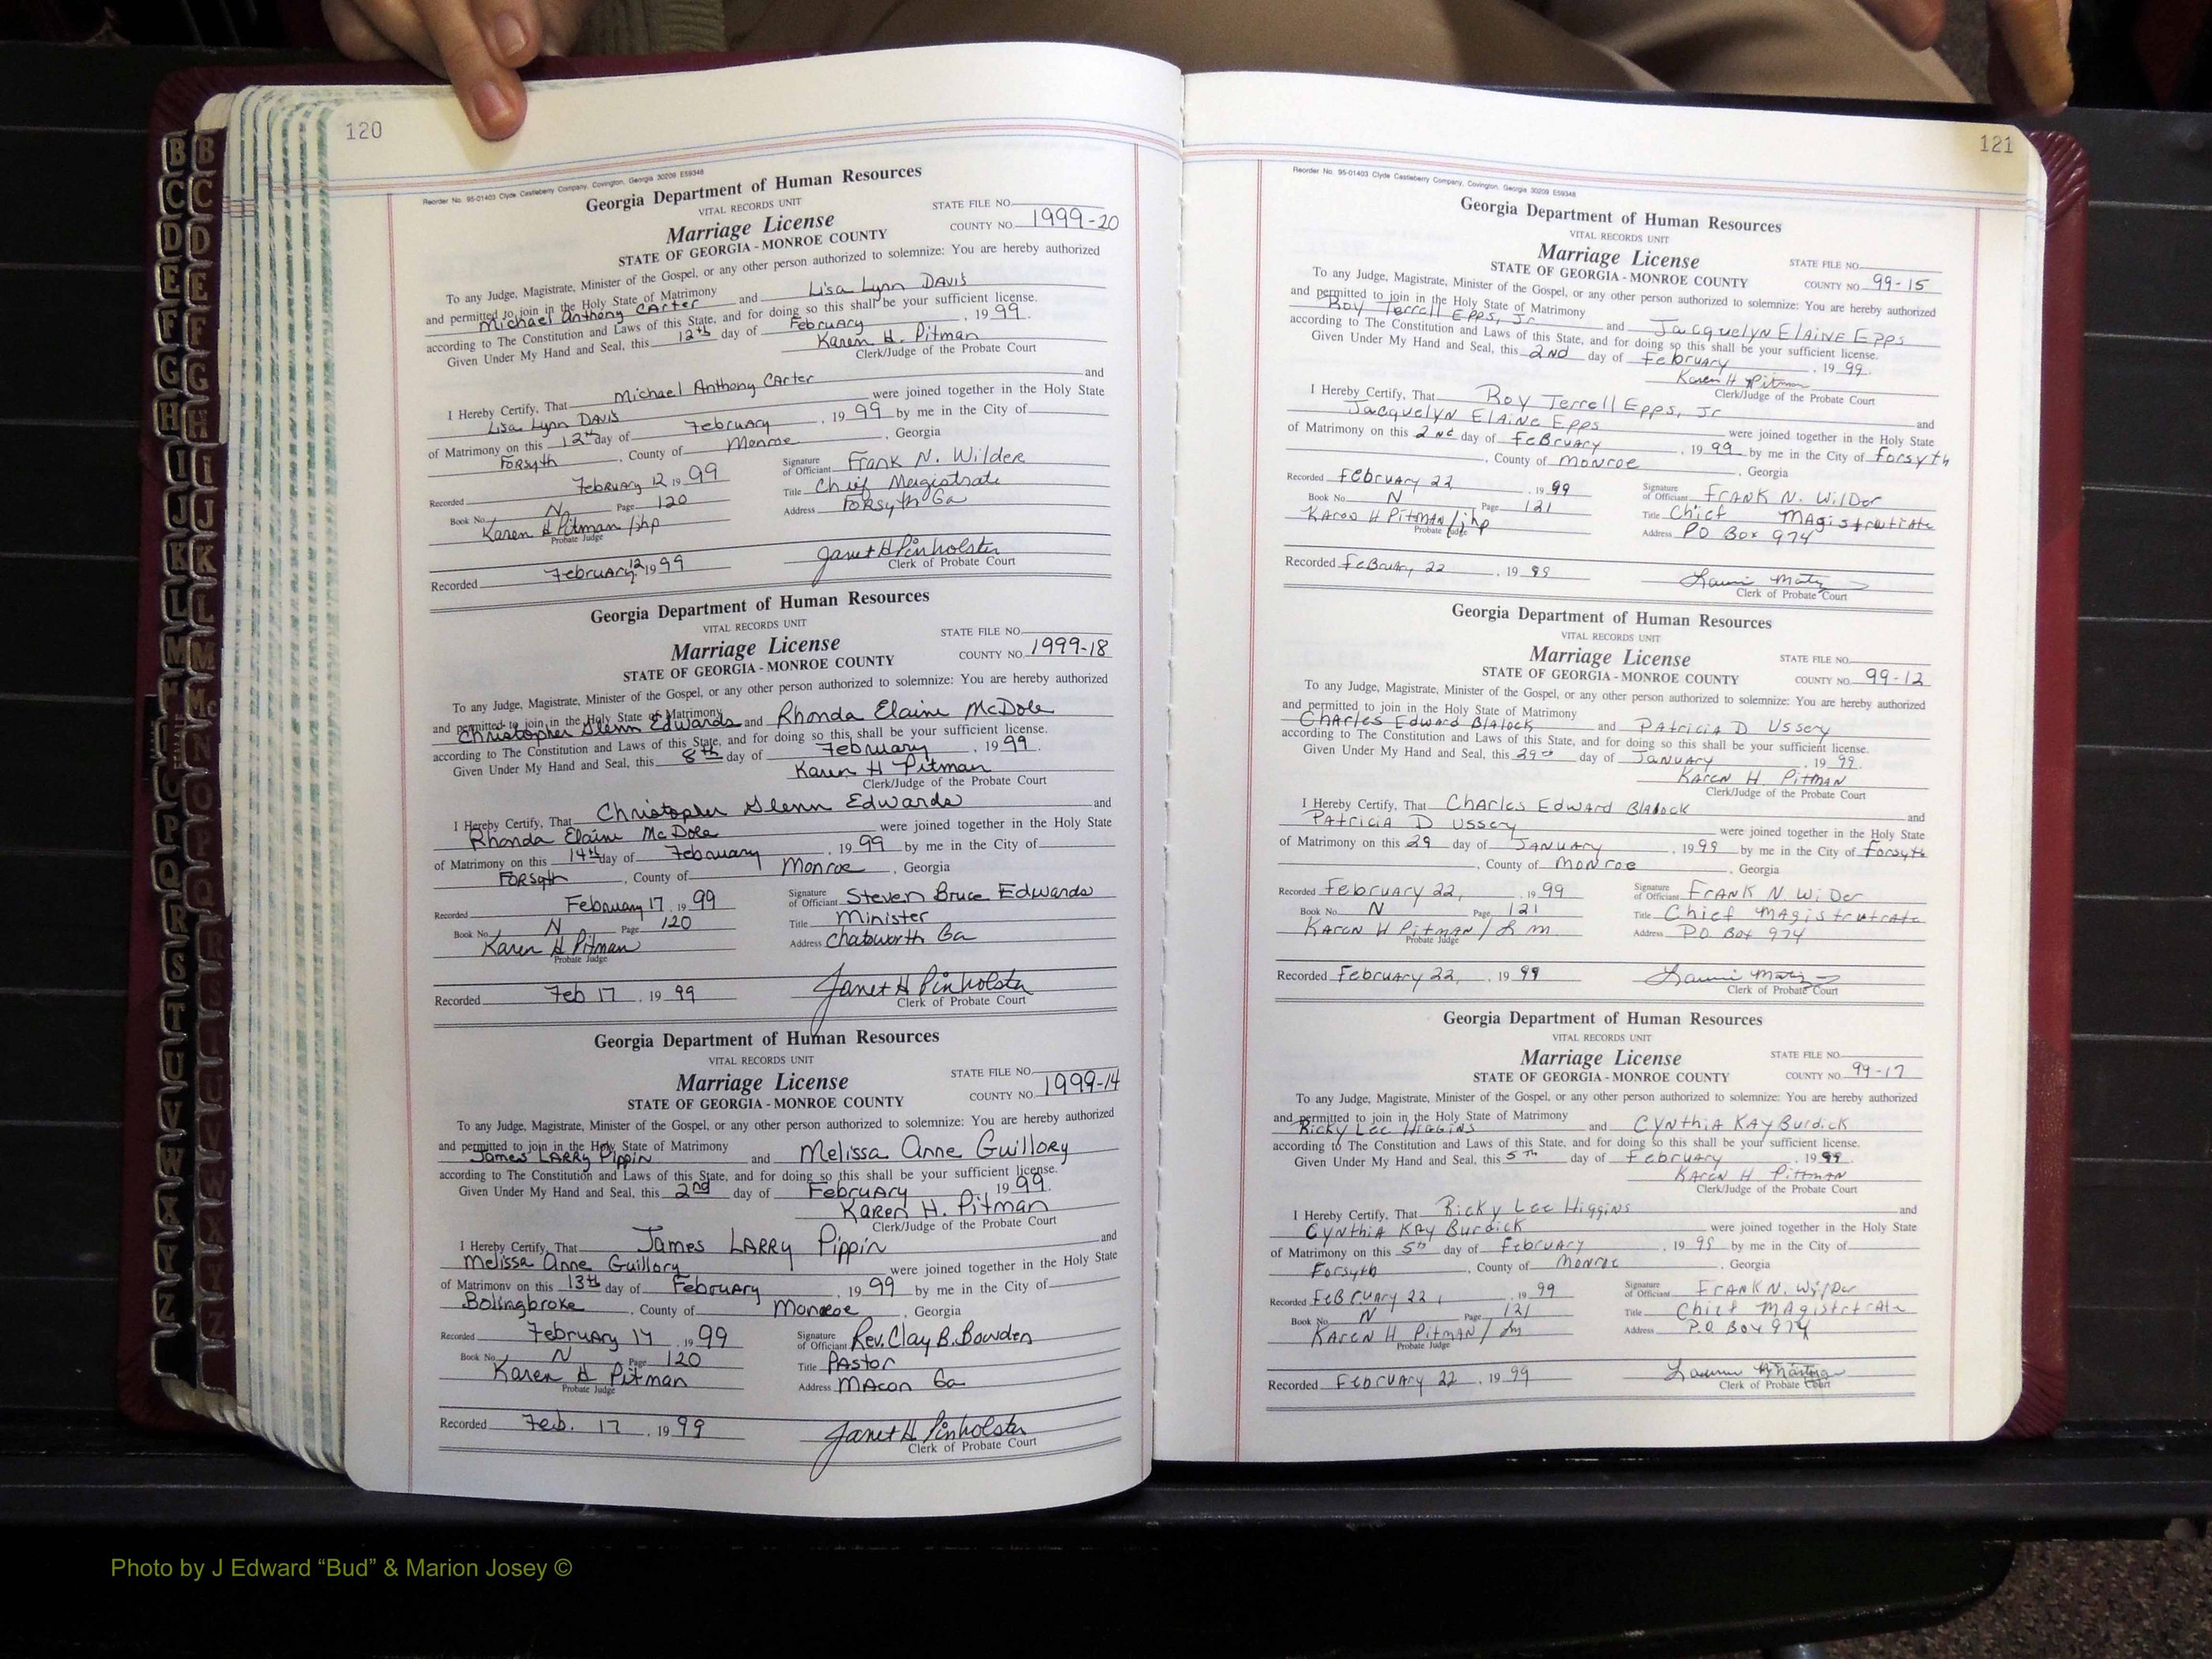 120
Reorder No. 95-01403 Clyde Castleberry Company, Covington, Georgia 30209 E59348
Georgia Department of Human Resources
VITAL RECORDS UNIT
Marriage License
STATE FILE NO.
STATE OF GEORGIA - MONROE COUNTY
COUNTY NO. 1999-20
To any Judge, Magistrate, Minister of the Gospel, or any other person authorized to solemnize: You are hereby authorized
and permitted to join in the Holy State of Matrimony
Michael Anthony Carter and Lisa Lynn Davis
according to The Constitution and Laws of this State, and for doing so this shall be your sufficient license.
Given Under My Hand and Seal, this 12th day of February, 1999.
Karen H. Pitman
Clerk/Judge of the Probate Court
I Hereby Certify, That Michael Anthony Carter and
Lisa Lynn Davis were joined together in the Holy State
of Matrimony on this 12th day of February, 1999 by me in the City of
Forsyth, County of Monroe, Georgia
Recorded February 12 1999
Signature of Officiant Frank N. Wilder
Book No. N Page 120
Title Chief Magistrate
Karen H Pitman/jhp
Address Forsyth Ga
Probate Judge
Recorded February 12 1999
Janet H Pinholster
Clerk of Probate Court
Georgia Department of Human Resources
VITAL RECORDS UNIT
Marriage License
STATE FILE NO.
STATE OF GEORGIA - MONROE COUNTY
COUNTY NO. 1999-18
To any Judge, Magistrate, Minister of the Gospel, or any other person authorized to solemnize: You are hereby authorized
and permitted to join in the Holy State of Matrimony
Christopher Glenn Edwards and Rhonda Elaine McDole
according to The Constitution and Laws of this State, and for doing so this shall be your sufficient license.
Given Under My Hand and Seal, this 8th day of February, 1999.
Karen H Pitman
Clerk/Judge of the Probate Court
I Hereby Certify, That Christopher Glenn Edwards and
Rhonda Elaine McDole were joined together in the Holy State
of Matrimony on this 14th day of February, 1999 by me in the City of
Forsyth, County of Monroe, Georgia
Recorded February 17, 1999
Signature of Officiant Steven Bruce Edwards
Book No. N Page 120
Title Minister
Karen H Pitman
Address Chatsworth Ga
Probate Judge
Recorded Feb 17, 1999
Janet H Pinholster
Clerk of Probate Court
Georgia Department of Human Resources
VITAL RECORDS UNIT
Marriage License
STATE FILE NO.
STATE OF GEORGIA - MONROE COUNTY
COUNTY NO. 1999-14
To any Judge, Magistrate, Minister of the Gospel, or any other person authorized to solemnize: You are hereby authorized
and permitted to join in the Holy State of Matrimony
James Larry Pippin and Melissa Anne Guillory
according to The Constitution and Laws of this State, and for doing so this shall be your sufficient license.
Given Under My Hand and Seal, this 2nd day of February 1999.
Karen H. Pitman
Clerk/Judge of the Probate Court
I Hereby Certify, That James Larry Pippin and
Melissa Anne Guillory were joined together in the Holy State
of Matrimony on this 13th day of February, 1999 by me in the City of
Bolingbroke, County of Monroe, Georgia
Recorded February 17, 1999
Signature of Officiant Rev. Clay B. Bowden
Book No. N Page 120
Title Pastor
Karen H Pitman
Address Macon Ga
Probate Judge
Recorded Feb. 17, 1999
Janet H Pinholster
Clerk of Probate Court
121
Reorder No. 95-01403 Clyde Castleberry Company, Covington, Georgia 30209 E59348
Georgia Department of Human Resources
VITAL RECORDS UNIT
Marriage License
STATE FILE NO.
STATE OF GEORGIA - MONROE COUNTY
COUNTY NO. 99-15
To any Judge, Magistrate, Minister of the Gospel, or any other person authorized to solemnize: You are hereby authorized
and permitted to join in the Holy State of Matrimony
Roy Terrell Epps, Jr and Jacquelyn Elaine Epps
according to The Constitution and Laws of this State, and for doing so this shall be your sufficient license.
Given Under My Hand and Seal, this 2nd day of February, 1999.
Karen H Pitman
Clerk/Judge of the Probate Court
I Hereby Certify, That Roy Terrell Epps, Jr and
Jacquelyn Elaine Epps were joined together in the Holy State
of Matrimony on this 2nd day of February, 1999 by me in the City of Forsyth
, County of Monroe, Georgia
Recorded February 22, 1999
Signature of Officiant Frank N. Wilder
Book No. N Page 121
Title Chief Magistrutrate
Karen H Pitman/jhp
Address PO Box 974
Probate Judge
Recorded February 22, 1999
Clerk of Probate Court
Georgia Department of Human Resources
VITAL RECORDS UNIT
Marriage License
STATE FILE NO.
STATE OF GEORGIA - MONROE COUNTY
COUNTY NO. 99-12
To any Judge, Magistrate, Minister of the Gospel, or any other person authorized to solemnize: You are hereby authorized
and permitted to join in the Holy State of Matrimony
Charles Edward Blalock and Patricia D Ussery
according to The Constitution and Laws of this State, and for doing so this shall be your sufficient license.
Given Under My Hand and Seal, this 29 day of January, 1999.
Karen H. Pitman
Clerk/Judge of the Probate Court
I Hereby Certify, That Charles Edward Blalock and
Patricia D Ussery were joined together in the Holy State
of Matrimony on this 29 day of January, 1999 by me in the City of Forsyth
, County of Monroe, Georgia
Recorded February 22, 1999
Signature of Officiant Frank N. Wilder
Book No. N Page 121
Title Chief Magistrutrate
Karen H Pitman/Lm
Address PO Box 974
Probate Judge
Recorded February 22, 1999
Clerk of Probate Court
Georgia Department of Human Resources
VITAL RECORDS UNIT
Marriage License
STATE FILE NO.
STATE OF GEORGIA - MONROE COUNTY
COUNTY NO. 99-17
To any Judge, Magistrate, Minister of the Gospel, or any other person authorized to solemnize: You are hereby authorized
and permitted to join in the Holy State of Matrimony
Ricky Lee Higgins and Cynthia Kay Burdick
according to The Constitution and Laws of this State, and for doing so this shall be your sufficient license.
Given Under My Hand and Seal, this 5th day of February, 1999.
Karen H Pittman
Clerk/Judge of the Probate Court
I Hereby Certify, That Ricky Lee Higgins and
Cynthia Kay Burdick were joined together in the Holy State
of Matrimony on this 5th day of February, 1999 by me in the City of
Forsyth, County of Monroe, Georgia
Recorded February 22, 1999
Signature of Officiant Frank N. Wilder
Book No. N Page 121
Title Chief Magistrtrate
Karen H Pitman/Lm
Address P.O Box 974
Probate Judge
Recorded February 22, 1999
Clerk of Probate Court
B B
C C
D D
E E
F F
G G
H H
I I
J J
K K
L L
M M
Mc
N
O
P P
Q Q
R R
S S
T T
U U
V V
W W
X X
Y Y
Z Z
Photo by J Edward “Bud” & Marion Josey ©